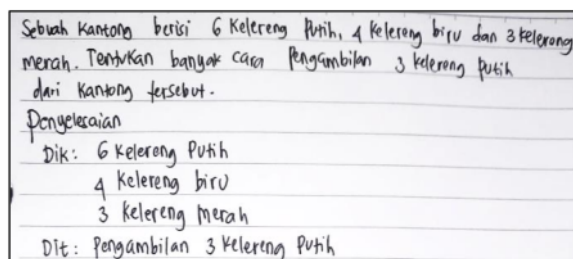 Sebuah Kantong berisi 6 Kelereng Putih, 4 Kelereng biru dan 3 kelereng
merah. Tentukan banyak cara Pengambilan 3 kelereng putih
dari Kantong tersebut.
Penyelesaian
Dik: 6 Kelereng Putih
4 Kelereng biru
3 Kelereng merah
Dit: Pengambilan 3 Kelereng Putih